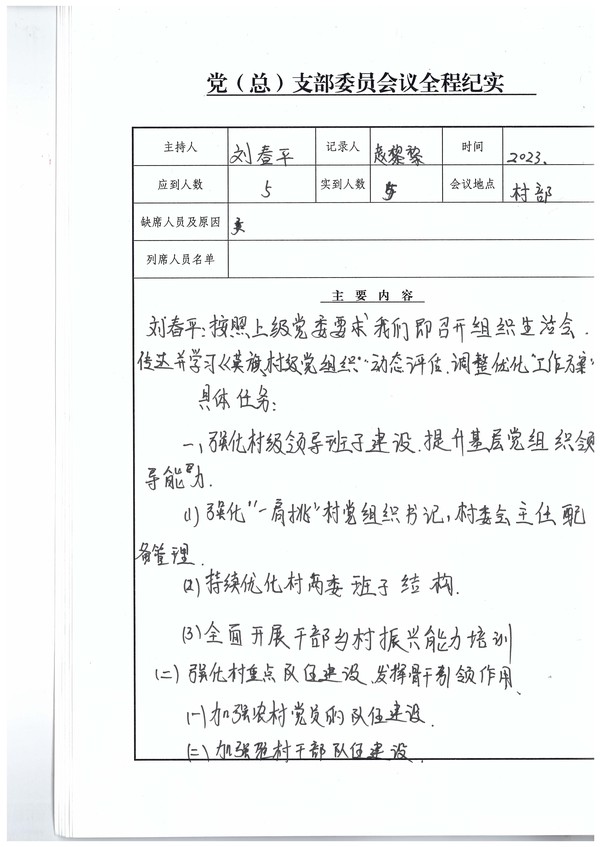 党（总）支部委员会议全程纪实
主持人 刘春平 记录人 黎黎 时间 2023.
应到人数 5 实到人数 5 会议地点 村部
缺席人员及原因
列席人员名单
主要内容
刘春平：按照上级党委要求我们即召开组织生活会.
传达并学习《英旗村级党组织“动态评估.调整优化”工作方案》
具体任务：
一，强化村级领导班子建设.提升基层党组织领
导能力.
(1)强化“一肩挑”村党组织书记，村委会主任配
备管理.
(2)持续优化村两委班子结构.
(3)全面开展干部乡村振兴能力培训
(二)强化村重点队伍建设.发挥骨干引领作用.
(一)加强农村党员的队伍建设.
(二)加强驻村干部队伍建设.